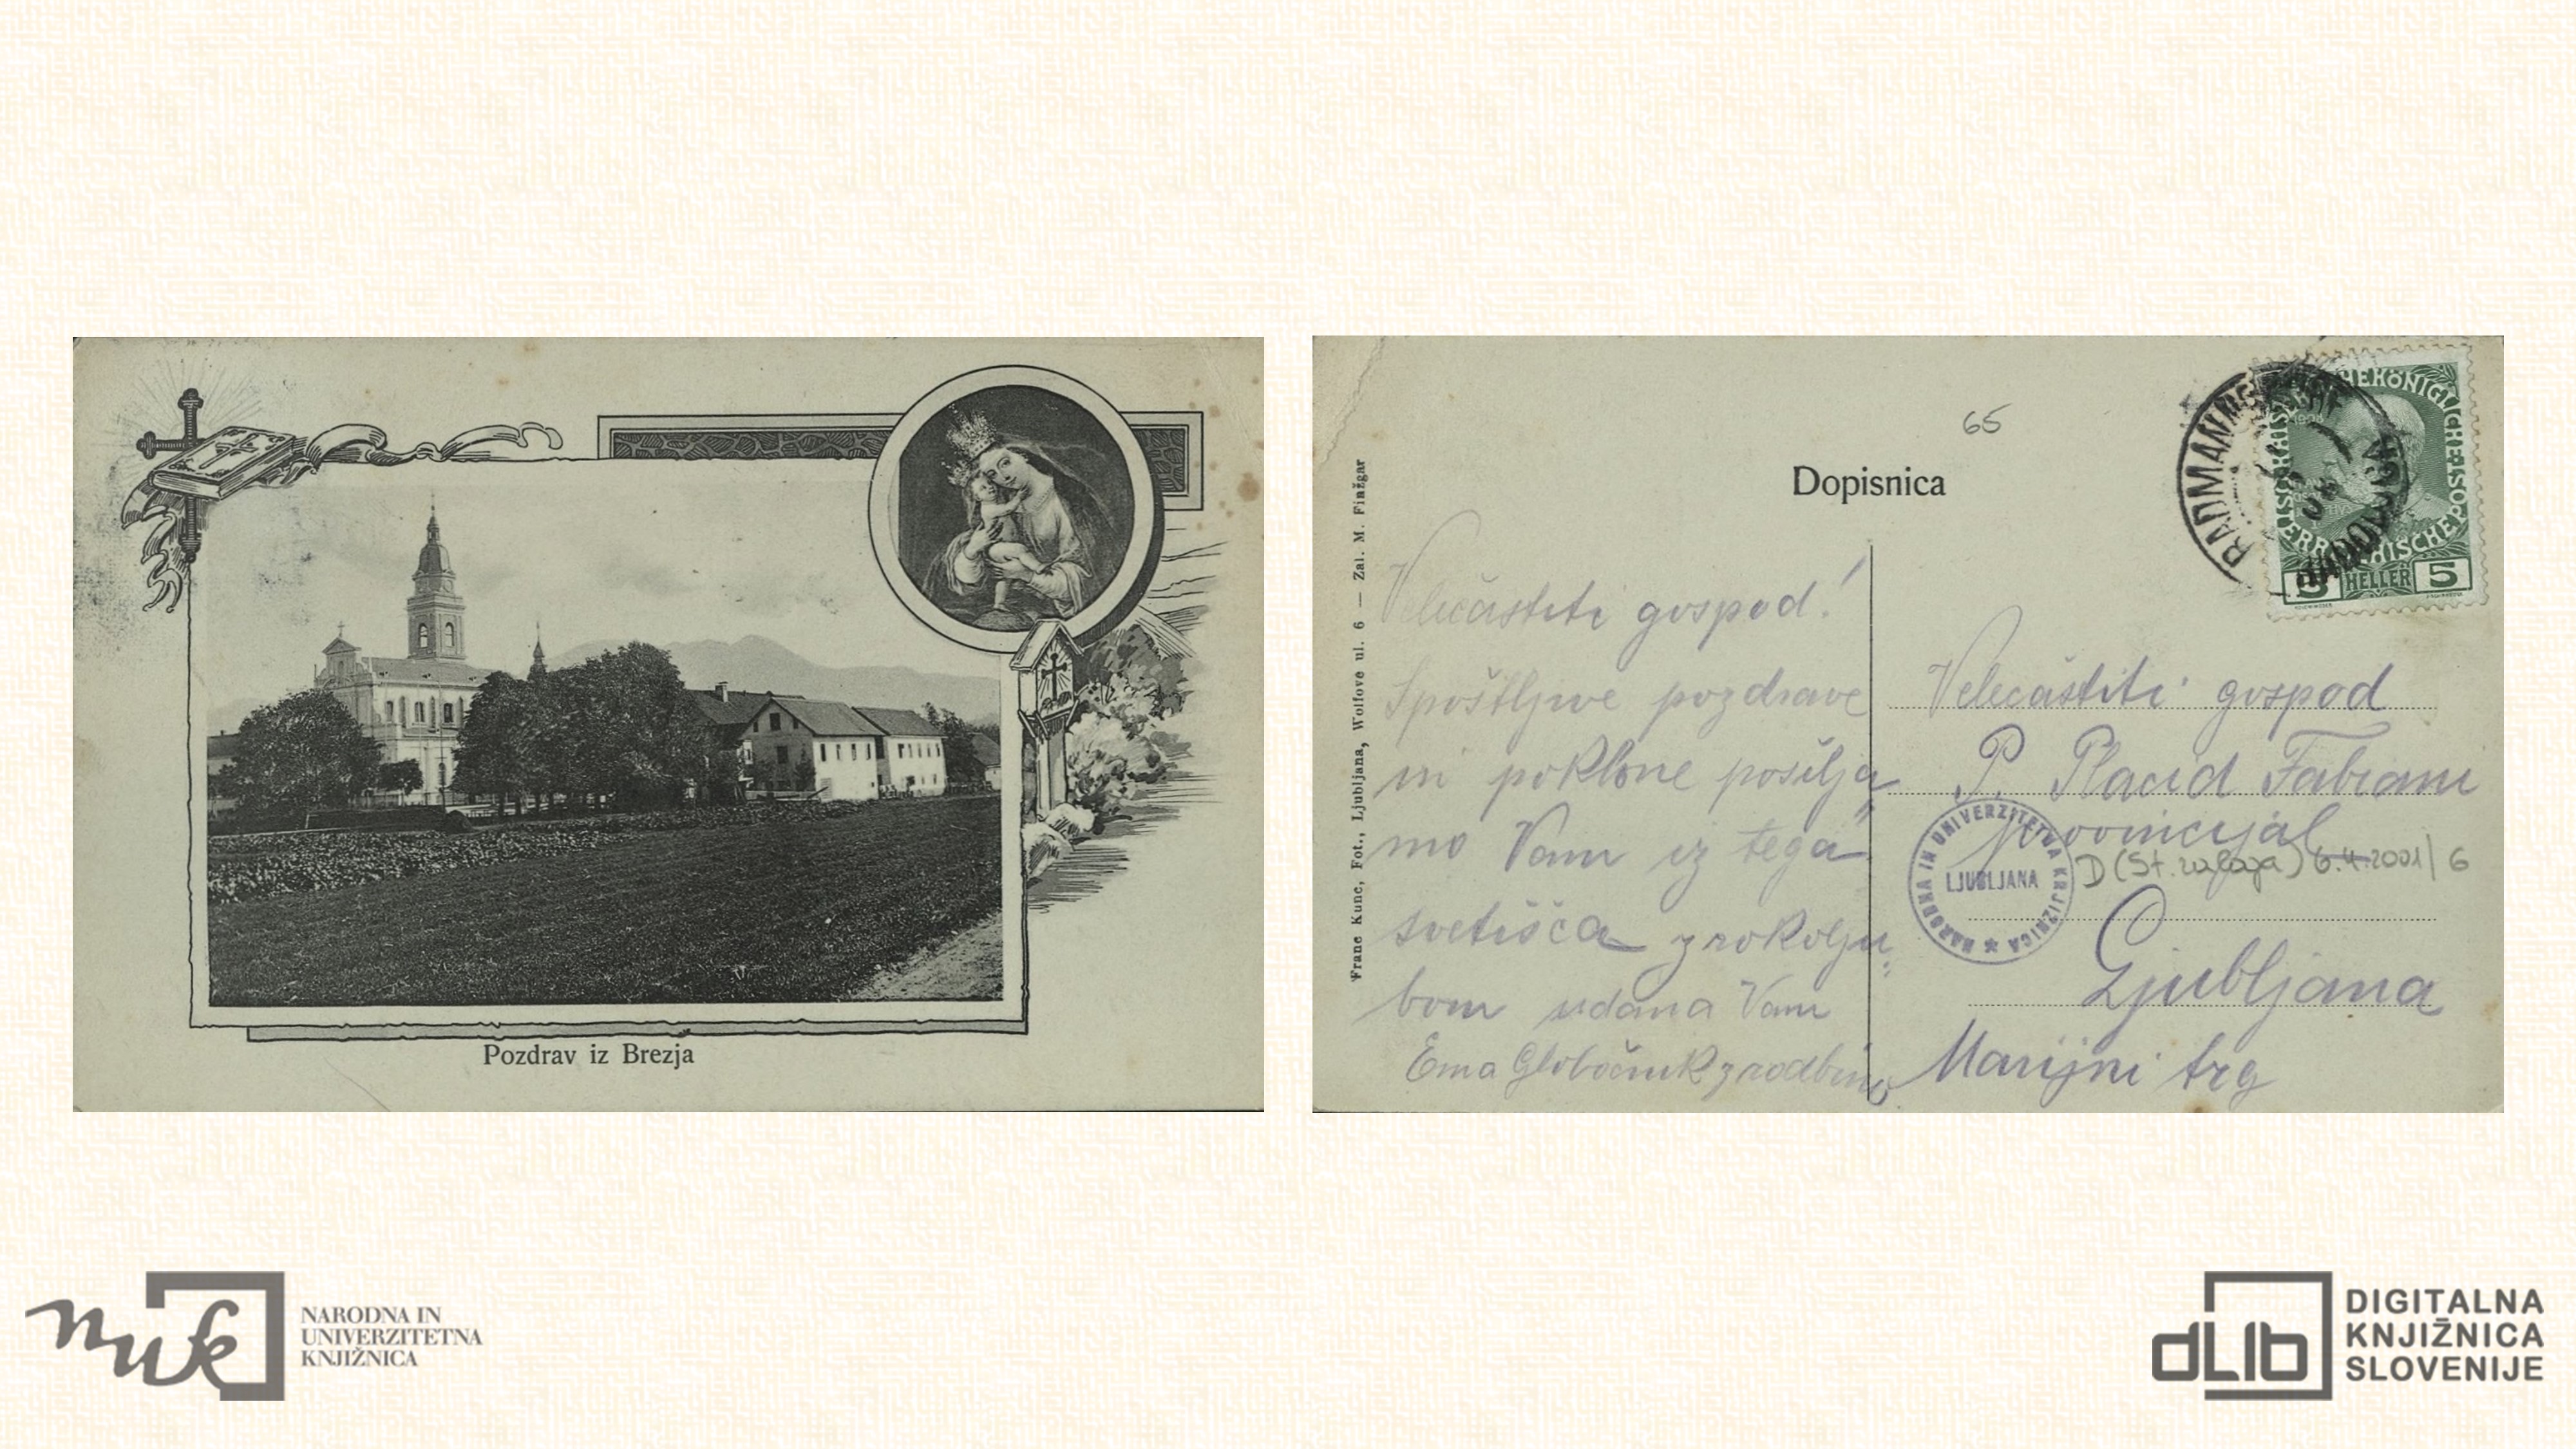 Pozdrav iz Brezja
Frane Kunc, Fot., Ljubljana, Wolfove ul. 6 — Zal. M. Finžgar
65
Dopisnica
RADMANNSDORF
RADOVLJICA
KAISERLICHE KÖNIGLICHE POST
ÖSTERREICHISCHE
5 HELLER 5
Velečastiti gospod!
Spoštljive pozdrave
in poklone pošilja
mo Vam iz tega
svetišča z rokolju
bom udana Vam
Ema Globočnik z rodbino
Velečastiti gospod
P. Placid Fabiani
provincijal
NARODNA IN UNIVERZITETNA KNJIŽNICA ★
LJUBLJANA
D (St. zaloga) 6.4.2001/6
Ljubljana
Marijni trg
nuk
NARODNA IN
UNIVERZITETNA
KNJIŽNICA
dLib
DIGITALNA
KNJIŽNICA
SLOVENIJE